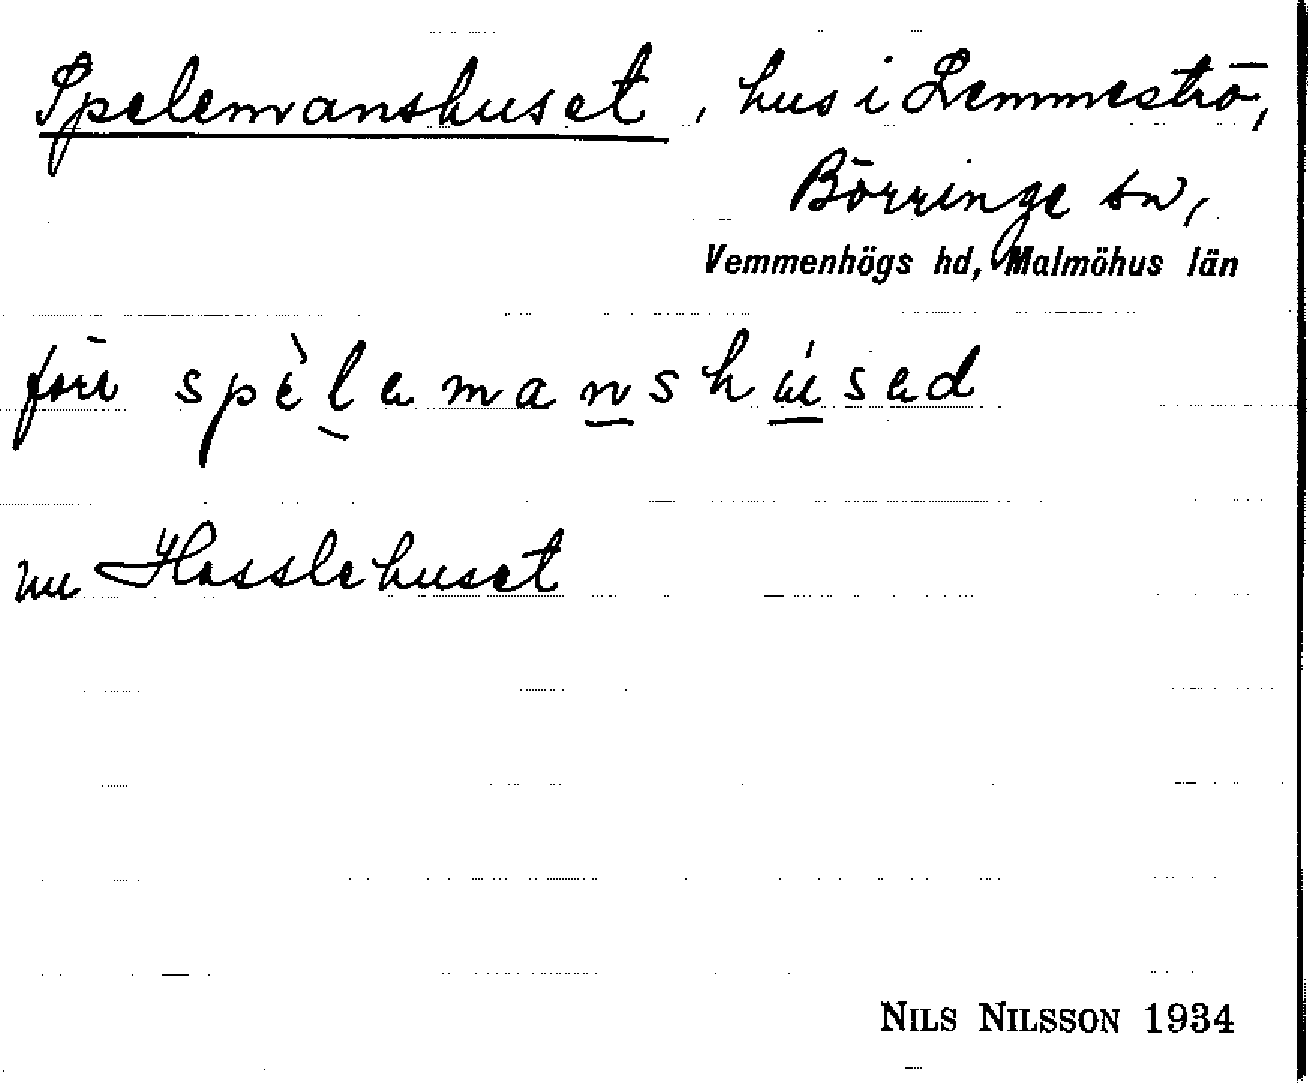 Spelemanshuset, hus i Lemmeströ,
Börringe sn,
Vemmenhögs hd, Malmöhus län
förr spèlemanshúsed
nu Hasslehuset
NILS NILSSON 1934